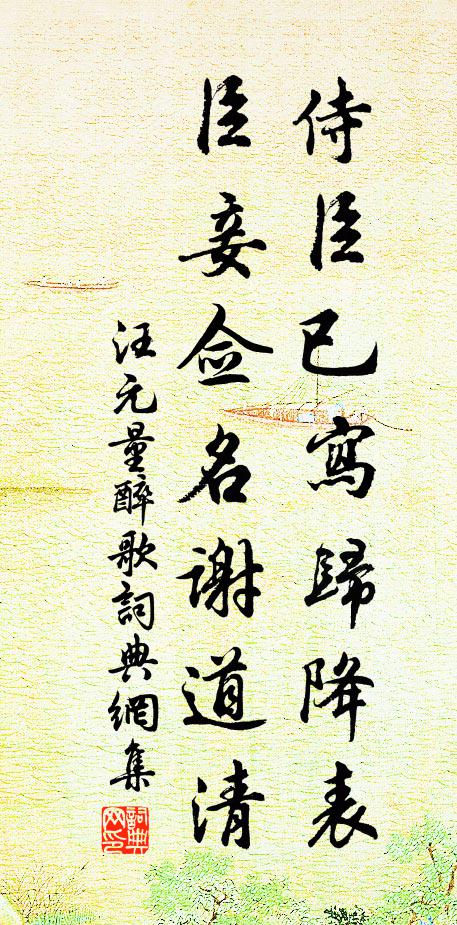 侍臣已寫歸降表
臣妾佥名謝道清
汪元量醉歌詞典網集
詞典网印